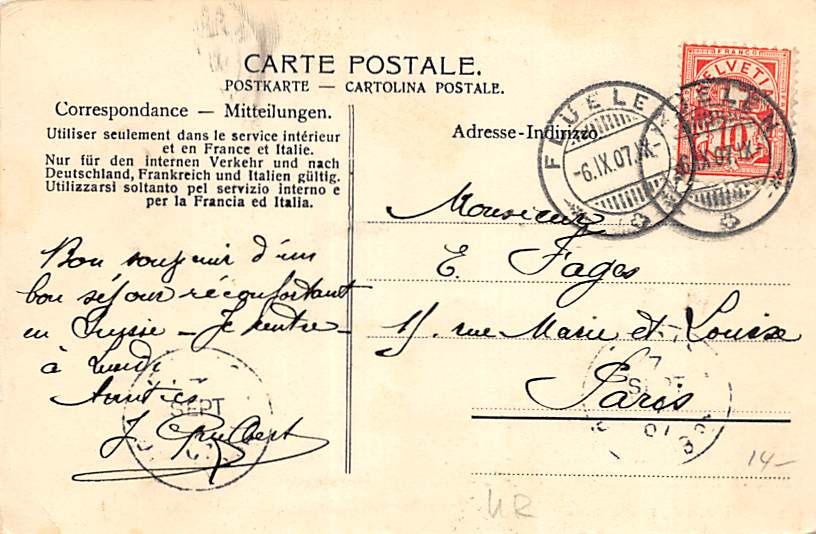 CARTE POSTALE.
POSTKARTE — CARTOLINA POSTALE.
Correspondance — Mitteilungen.
Utiliser seulement dans le service intérieur
et en France et Italie.
Nur für den internen Verkehr und nach
Deutschland, Frankreich und Italien gültig.
Utilizzarsi soltanto pel servizio interno e
per la Francia ed Italia.
Adresse-Indirizzo.
FRANCO
HELVETIA
10
FLUELEN
-6.IX.07.IX-
FLUELEN
-6.IX.07.IX-
Bon souvenir d'un
bon séjour réconfortant
en Suisse — Je rentre
à Lundi
Amitiés
J.
Monsieur
E. Fages
15, rue Marie et Louise
Paris
SEPT
7
SEPT
07
14-